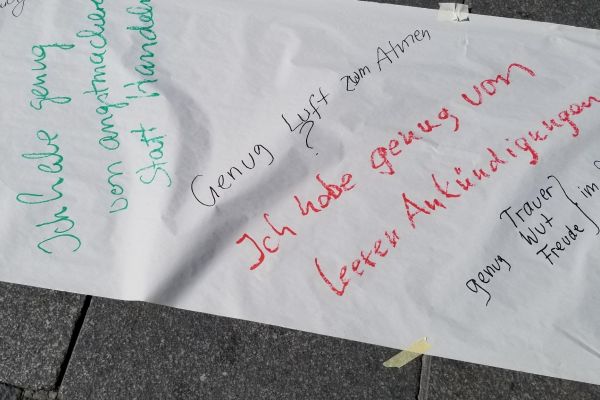 Ich habe genug
von angstmachere
statt Handeln
Genug Luft zum Atmen
?
Ich habe genug von
leeren Ankündigungen
genug
Trauer
Wut
Freude
im